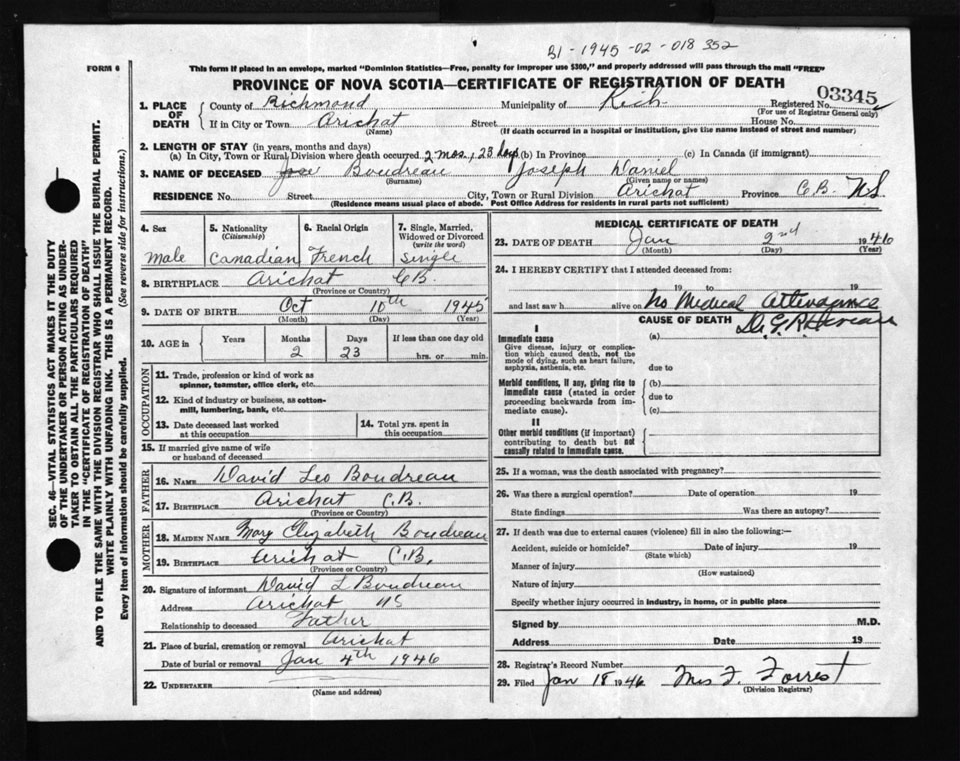 B1-1945-02-018352
FORM 6
This form if placed in an envelope, marked "Dominion Statistics—Free, penalty for improper use $300," and properly addressed will pass through the mail "FREE"
PROVINCE OF NOVA SCOTIA—CERTIFICATE OF REGISTRATION OF DEATH
03345
1. PLACE OF DEATH
County of Richmond Municipality of Rich. Registered No.
(For use of Registrar General only)
If in City or Town Arichat Street House No.
(Name) (If death occurred in a hospital or institution, give the name instead of street and number)
2. LENGTH OF STAY (in years, months and days)
(a) In City, Town or Rural Division where death occurred 2 mos, 23 days (b) In Province (c) In Canada (if immigrant)
3. NAME OF DECEASED Boudreau Joseph Daniel
(Surname) (Given name or names)
RESIDENCE No. Street City, Town or Rural Division Arichat Province C.B. N.S
(Residence means usual place of abode. Post Office Address for residents in rural parts not sufficient)
4. Sex
Male
5. Nationality
(Citizenship)
Canadian
6. Racial Origin
French
7. Single, Married, Widowed or Divorced
(write the word)
Single
8. BIRTHPLACE Arichat C.B.
(Province or Country)
9. DATE OF BIRTH Oct 10th 1945
(Month) (Day) (Year)
10. AGE in Years Months Days If less than one day old
2 23 hrs. or min.
OCCUPATION
11. Trade, profession or kind of work as
spinner, teamster, office clerk, etc.
12. Kind of industry or business, as cotton-
mill, lumbering, bank, etc.
13. Date deceased last worked
at this occupation
14. Total yrs. spent in
this occupation
15. If married give name of wife
or husband of deceased
FATHER
16. NAME David Leo Boudreau
17. BIRTHPLACE Arichat C.B.
(Province or Country)
MOTHER
18. MAIDEN NAME Mary Elizabeth Boudreau
19. BIRTHPLACE Arichat C.B.
(Province or Country)
20. Signature of informant David L Boudreau
Address Arichat NS
Relationship to deceased Father
21. Place of burial, cremation or removal Arichat
Date of burial or removal Jan 4th 1946
22. UNDERTAKER
(Name and address)
MEDICAL CERTIFICATE OF DEATH
23. DATE OF DEATH Jan 2nd 1946
(Month) (Day) (Year)
24. I HEREBY CERTIFY that I attended deceased from:
19 to 19
and last saw h alive on No Medical Attendance
CAUSE OF DEATH Dr G. R.
I
Immediate cause
Give disease, injury or complica-
tion which caused death, not the
mode of dying, such as heart failure,
asphyxia, asthenia, etc.
(a)
due to
Morbid conditions, if any, giving rise to
immediate cause (stated in order
proceeding backwards from im-
mediate cause).
(b)
due to
(c)
II
Other morbid conditions (if important)
contributing to death but not
causally related to immediate cause.
25. If a woman, was the death associated with pregnancy?
26. Was there a surgical operation? Date of operation 19
State findings Was there an autopsy?
27. If death was due to external causes (violence) fill in also the following:—
Accident, suicide or homicide? Date of injury 19
(State which)
Manner of injury
(How sustained)
Nature of injury
Specify whether injury occurred in industry, in home, or in public place
Signed by M.D.
Address Date 19
28. Registrar's Record Number
29. Filed Jan 18 1946 Mrs F. Forrest
(Division Registrar)
SEC. 46—VITAL STATISTICS ACT MAKES IT THE DUTY
OF THE UNDERTAKER OR PERSON ACTING AS UNDER-
TAKER TO OBTAIN ALL THE PARTICULARS REQUIRED
IN THE "CERTIFICATE OF REGISTRATION OF DEATH"
AND TO FILE THE SAME WITH THE DIVISION REGISTRAR WHO SHALL ISSUE THE BURIAL PERMIT.
WRITE PLAINLY WITH UNFADING INK. THIS IS A PERMANENT RECORD.
Every item of information should be carefully supplied. (See reverse side for instructions.)